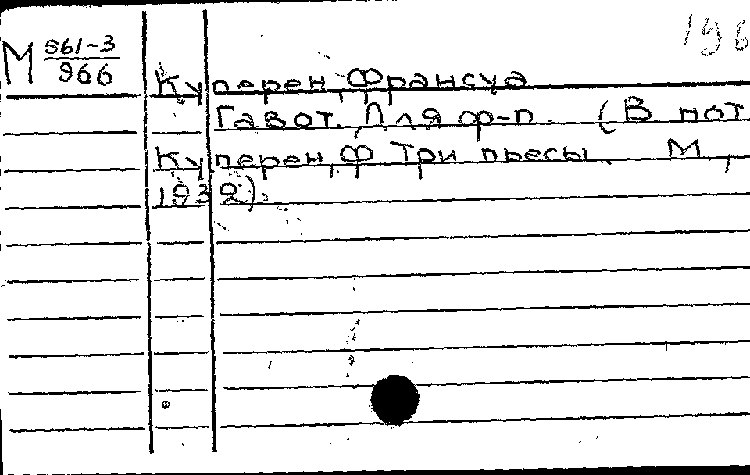 196
М 961-3/966
Куперен, Франсуа
Гавот. Для ф-п. (В нот
Куперен, Ф Три пьесы. М.,
1932).